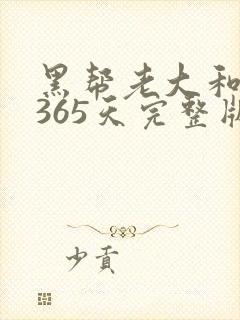 黑帮老大和
365天完整版
少贡